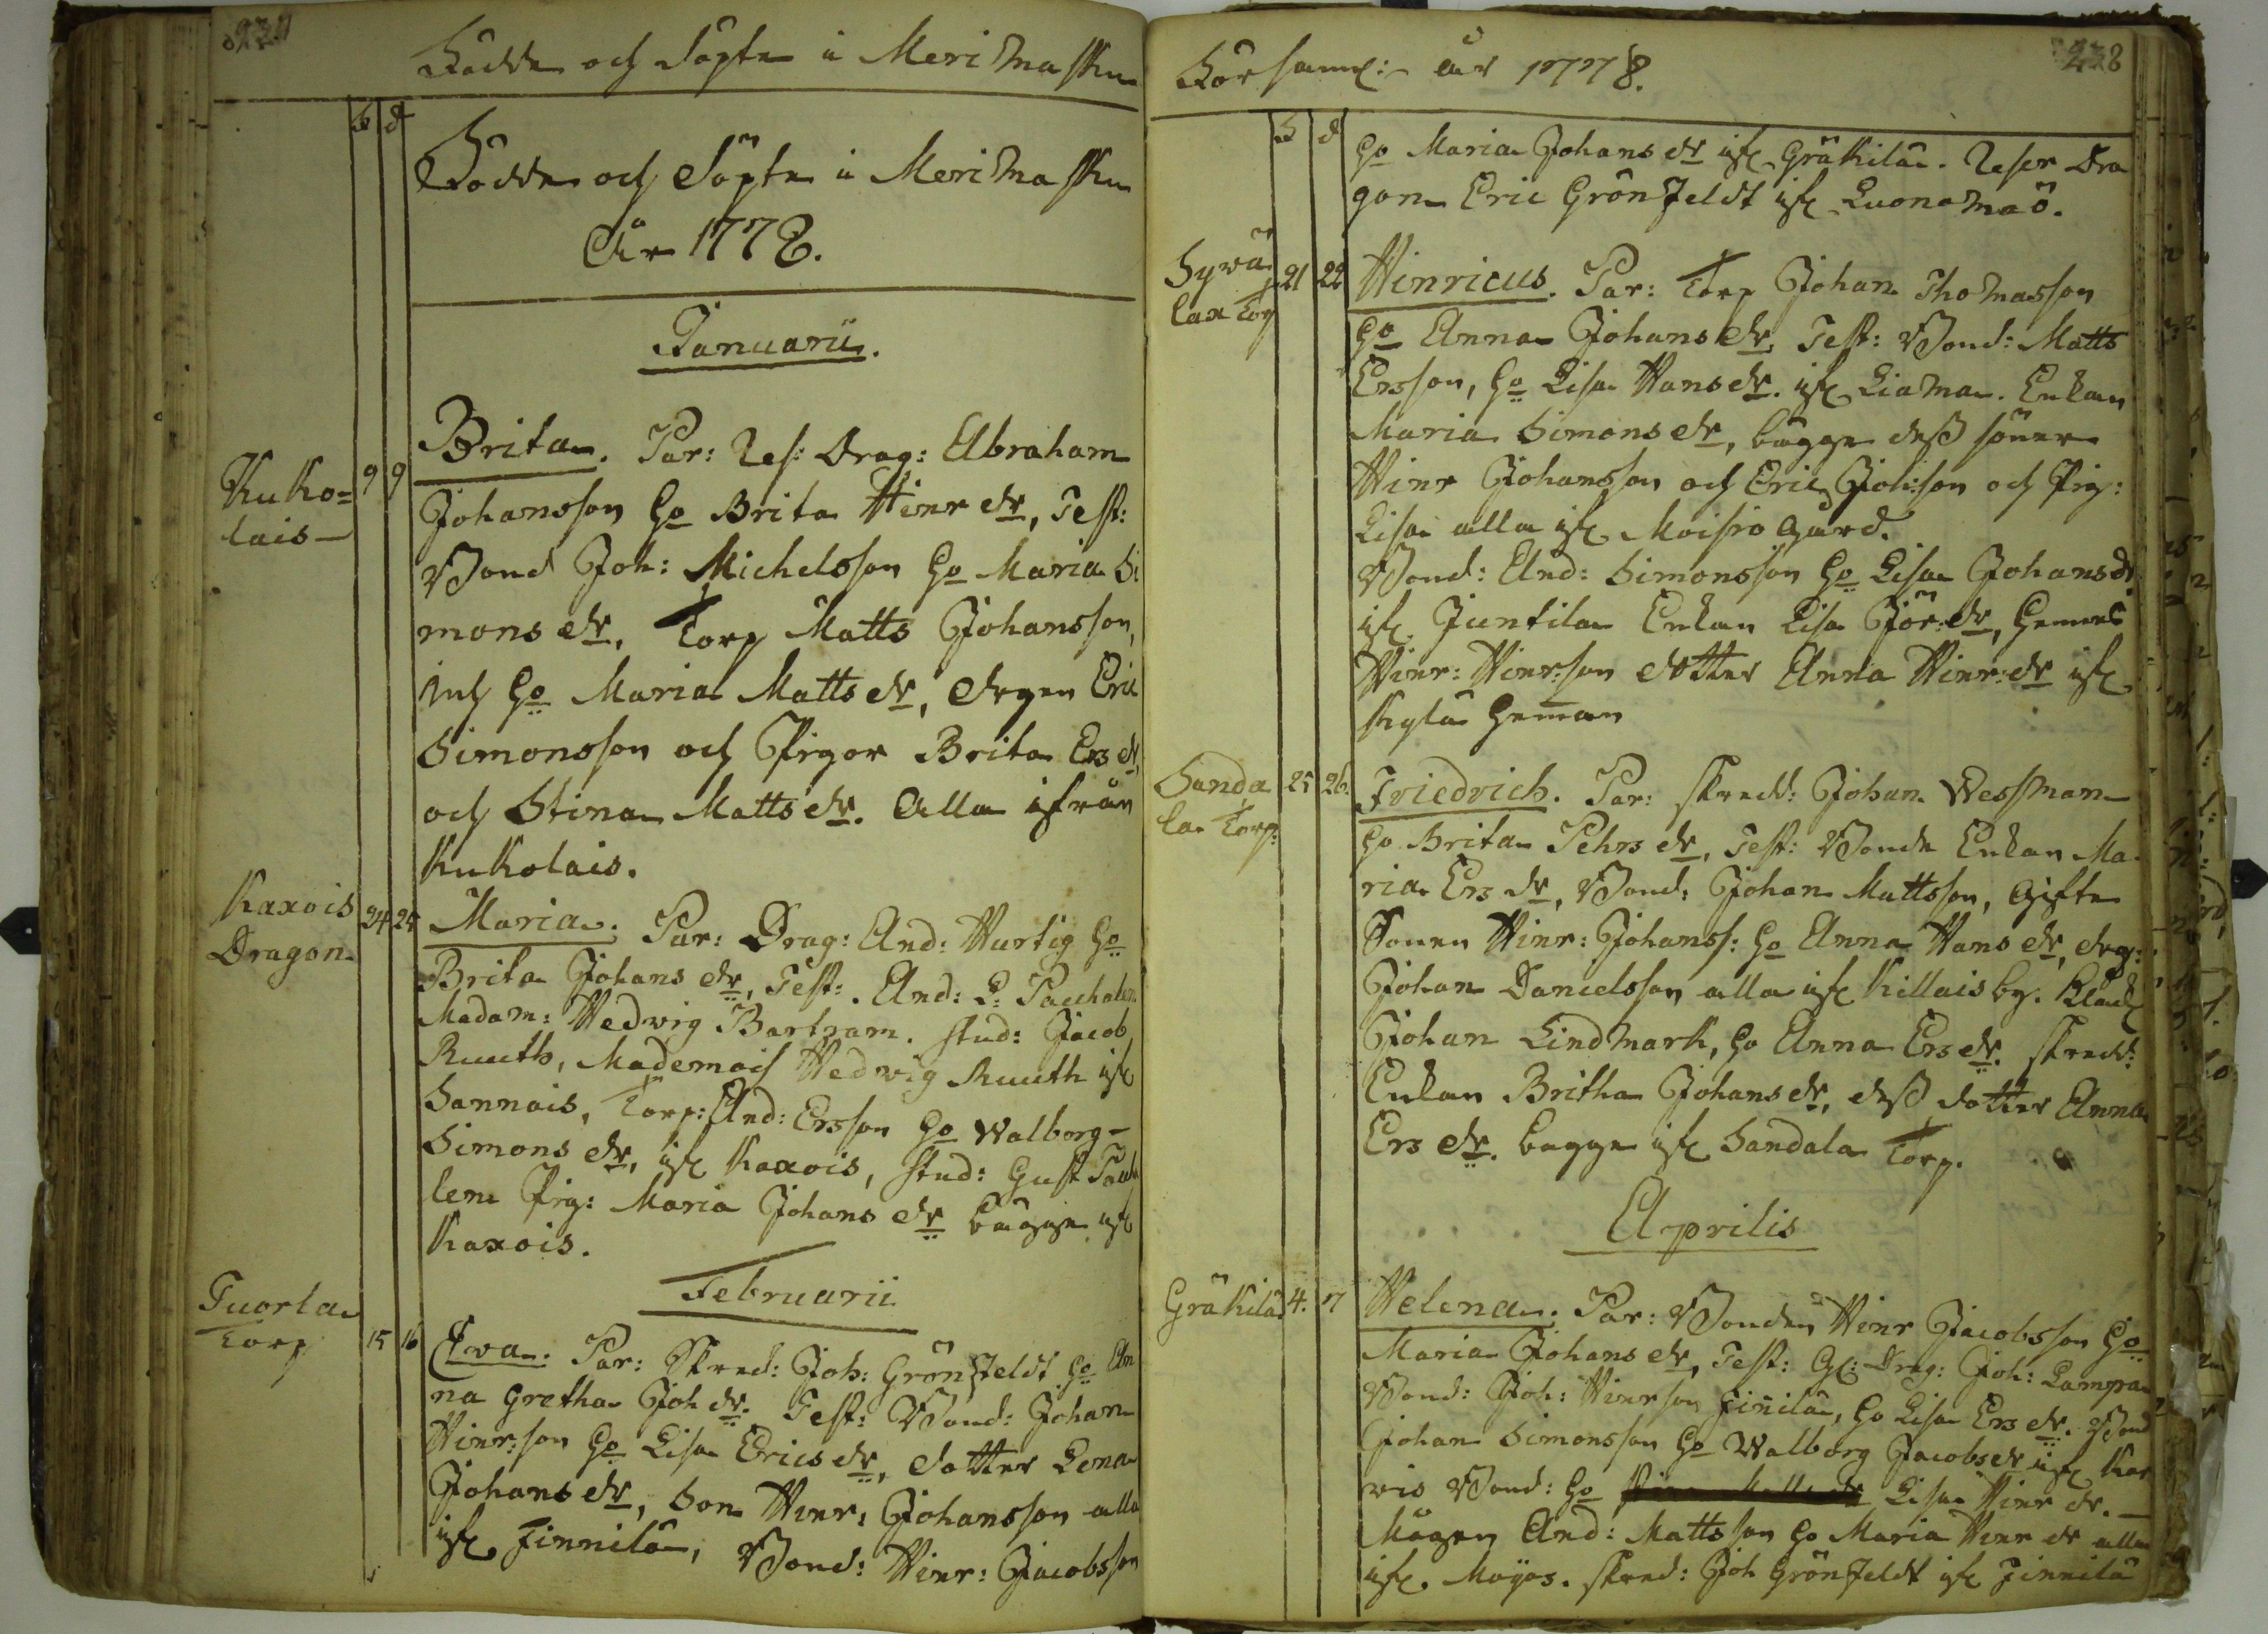 Födde och döpte i Merimasku
B d
Födde och Döpte i Merimasku
År 1778.
Januarii.
Kuko=
lais
9 9
Brita. Par: Res: Drag: Abraham
Johansson Ho Brita Hinr dr, Test:
Bond Joh: Michelsson Ho Maria Si
mons dr, Torp Matts Johansson,
Ho Maria Matts dr, drgen Eric
Simonsson och Pigor Brita Ers dr
och Stina Matts dr. Alla ifrån
Kukolais.
Kaxois
Dragon
24 25
Maria. Par: Drag: And: Hurtig Ho
Brita Johans dr, Test: And: L: Pacchalen
Madam: Hedvig Bartram. stud: Jacob
Ruuth, Mademois Hedvig Ruuth ifr
Sannais, Torp: And: Ersson Ho Walborg
Simons dr, ifr Kaxois, stud: Gust Pach
len Pig: Maria Johans dr bägge ifr
Kaxois.
Februarii
Tuorla
Torp
15 16
Eva. Par: Skred: Joh: Grönfeldt Ho An
na Gretha Joh dr. Test: Bond: Johan
Hinr:son Ho Lisa Erics dr, dotter Lena
Johans dr, Son Hinr: Johansson alla
ifr Finnilä, Bond: Hinr: Jacobsson
Församl: år 1778.
238
B d
Ho Maria Johans dr ifr Gräkilä. Reser Dra
gon Eric Grönfeldt ifr Luonomaö.
Sywä
lax Torp
21 22
Hinricus. Par: Torp Johan Thomasson
Ho Anna Johans dr, Test: Bond: Matts
Ersson, Ho Lisa Hans dr. ifr Liama. Enkan
Maria Simons dr, bägge dess söner
Hinr Johansson och Eric Joh:son och Pig:
Lisa alla ifr Moisio Gård.
Bond: And: Simonsson Ho Lisa Johans dr
ifr Juntila Enkan Lisa Jör: dr,
Hinr: Hinr:son dotter Anna Hinr: dr ifr
Kylä
Sanda
la Torp:
25 26
Friedrich. Par: skredd: Johan Wessman
Ho Brita Pehrs dr, Test: Bonde Enkan Ma
ria Ers dr, Bond: Johan Mattsson, Gifte
Sonen Hinr: Johanss: Ho Anna Hans dr, drg:
Johan Danielsson alla ifr Killais by.
Johan Lindmark, Ho Anna Ers dr. skredd:
Enkan Britha Johans dr, dess dotter Anna
Ers dr. bägge ifr Sandala Torp.
Aprilis
Gräkilä
4. 7
Helena. Par: Bonden Hinr Jacobsson Ho
Maria Johans dr, Test: Gl: Drag: Joh: Lampa
Bond: Joh: Hinrson Finilä, Ho Lisa Ers dr. Bond
Johan Simonsson Ho Walborg Jacobs dr ifr Kar
vis Bond: Ho Lisa Hinr dr.
Mågen And: Mattsson Ho Maria Hinr dr alla
ifr. Moijos. skred: Joh Grönfeldt ifr Finnilä